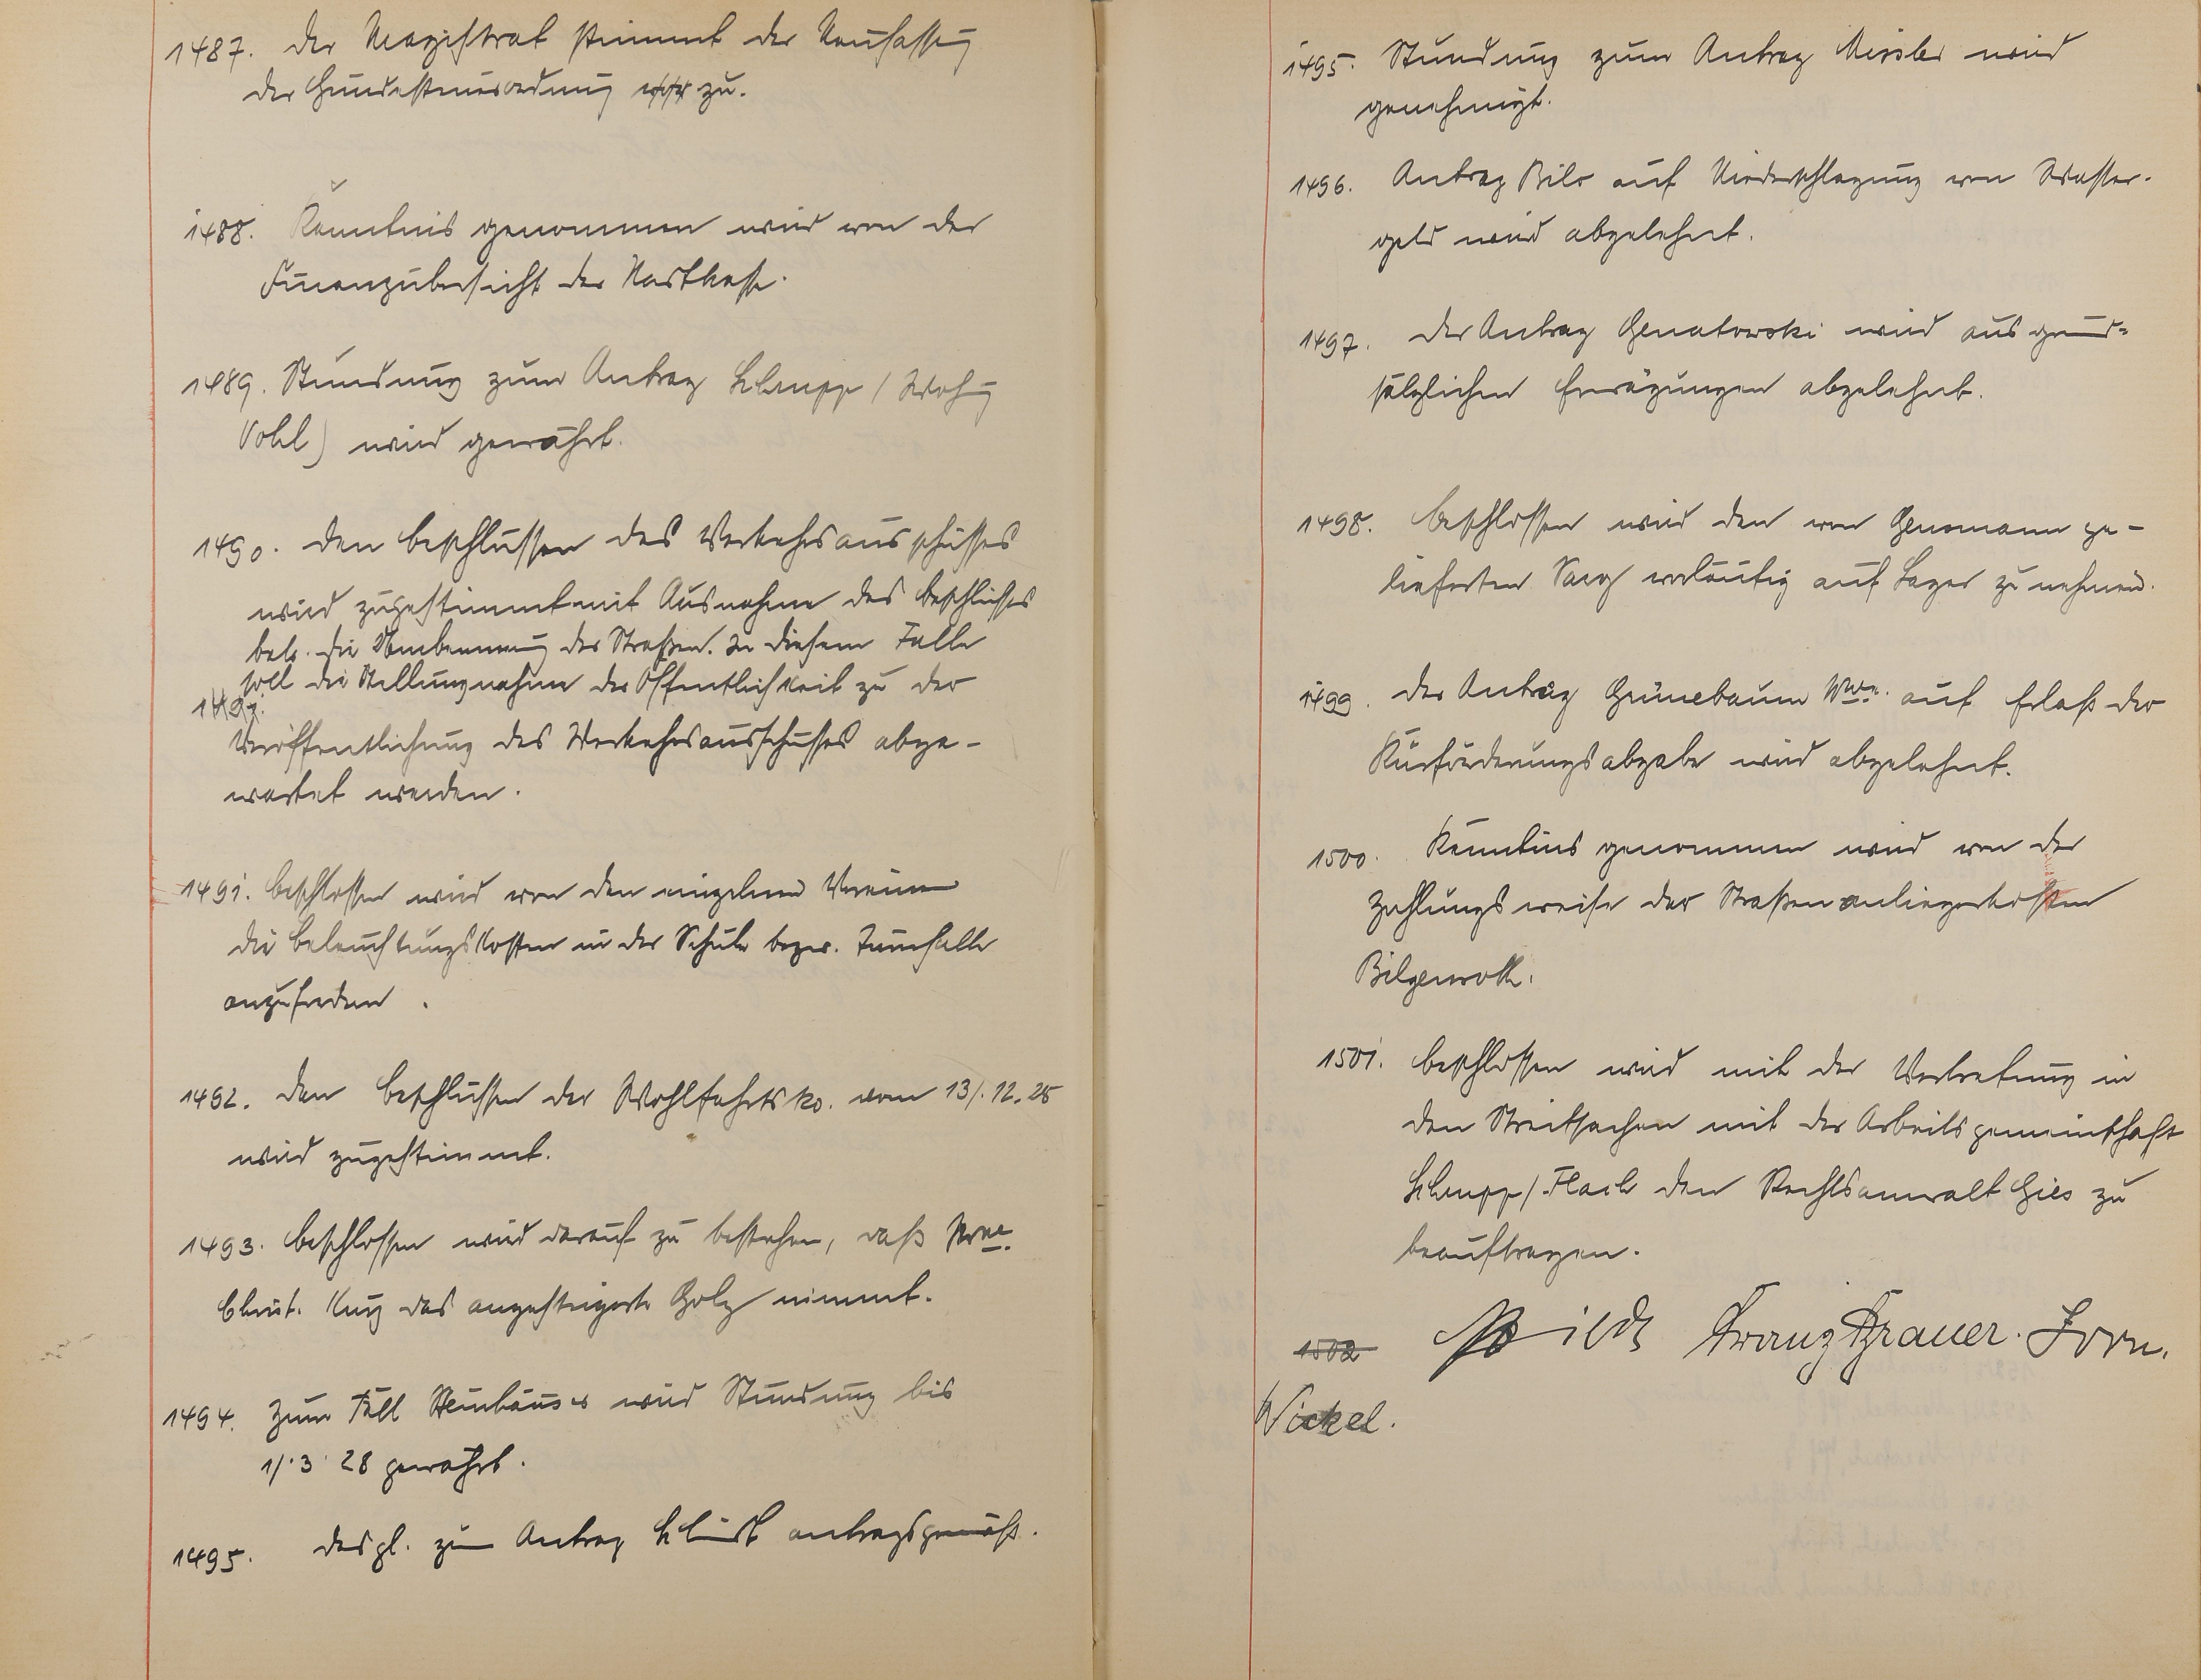 1487. Der Magistrat stimmt der Neufassung
der Hundesteuerordnung zu.
1488. Kenntnis genommen wird von der
Finanzübersicht der Stadtkasse.
1489. Stundung zum Antrag Schupp / Wohng
Vohl) wird gewährt.
1490. Den Beschlüssen des Verkehrsausschusses
wird zugestimmt mit Ausnahme des Beschlusses
betr. die Umbenennung der Straßen. In diesem Falle
soll die Stellungnahme der Öffentlichkeit zu der
1491.
Veröffentlichung des Verkehrsausschusses abge-
wartet werden.
1491. Beschlossen wird von den einzelnen Vereinen
die Beleuchtungskosten in der Schule bezw. Turnhalle
anzufordern.
1492. Den Beschlüssen der Wohlfahrtsko. vom 13/.12.28
wird zugestimmt.
1493. Beschlossen wird darauf zu bestehen, daß Wwe.
Christ. Krug das angesteigerte Holz nimmt.
1494. Zum Fall Steinhäuser wird Stundung bis
1/.3 28 gewährt.
1495. Desgl. zum Antrag antragsgemäß.
1495. Stundung zum Antrag Missler wird
genehmigt.
1496. Antrag Bilo auf Niederschlagung von Wasser-
geld wird abgelehnt.
1497. Der Antrag Genatowski wird aus grund-
sätzlichen Erwägungen abgelehnt.
1498. Beschlossen wird den von Hensmann ge-
lieferten Sarg vorläufig auf Lager zu nehmen.
1499. Der Antrag Grünebaum Wwe. auf Erlaß der
Kurförderungsabgabe wird abgelehnt.
1500. Kenntnis genommen wird von der
Zahlungsweise der Straßenanliegerkosten
Bilgenroth.
1501. Beschlossen wird mit der Vertretung in
den Streitsachen mit der Arbeitsgemeinschaft
Schupp/Flach den Rechtsanwalt Gies zu
beauftragen.
1502 Franz Brauer. Horn.
Nickel.